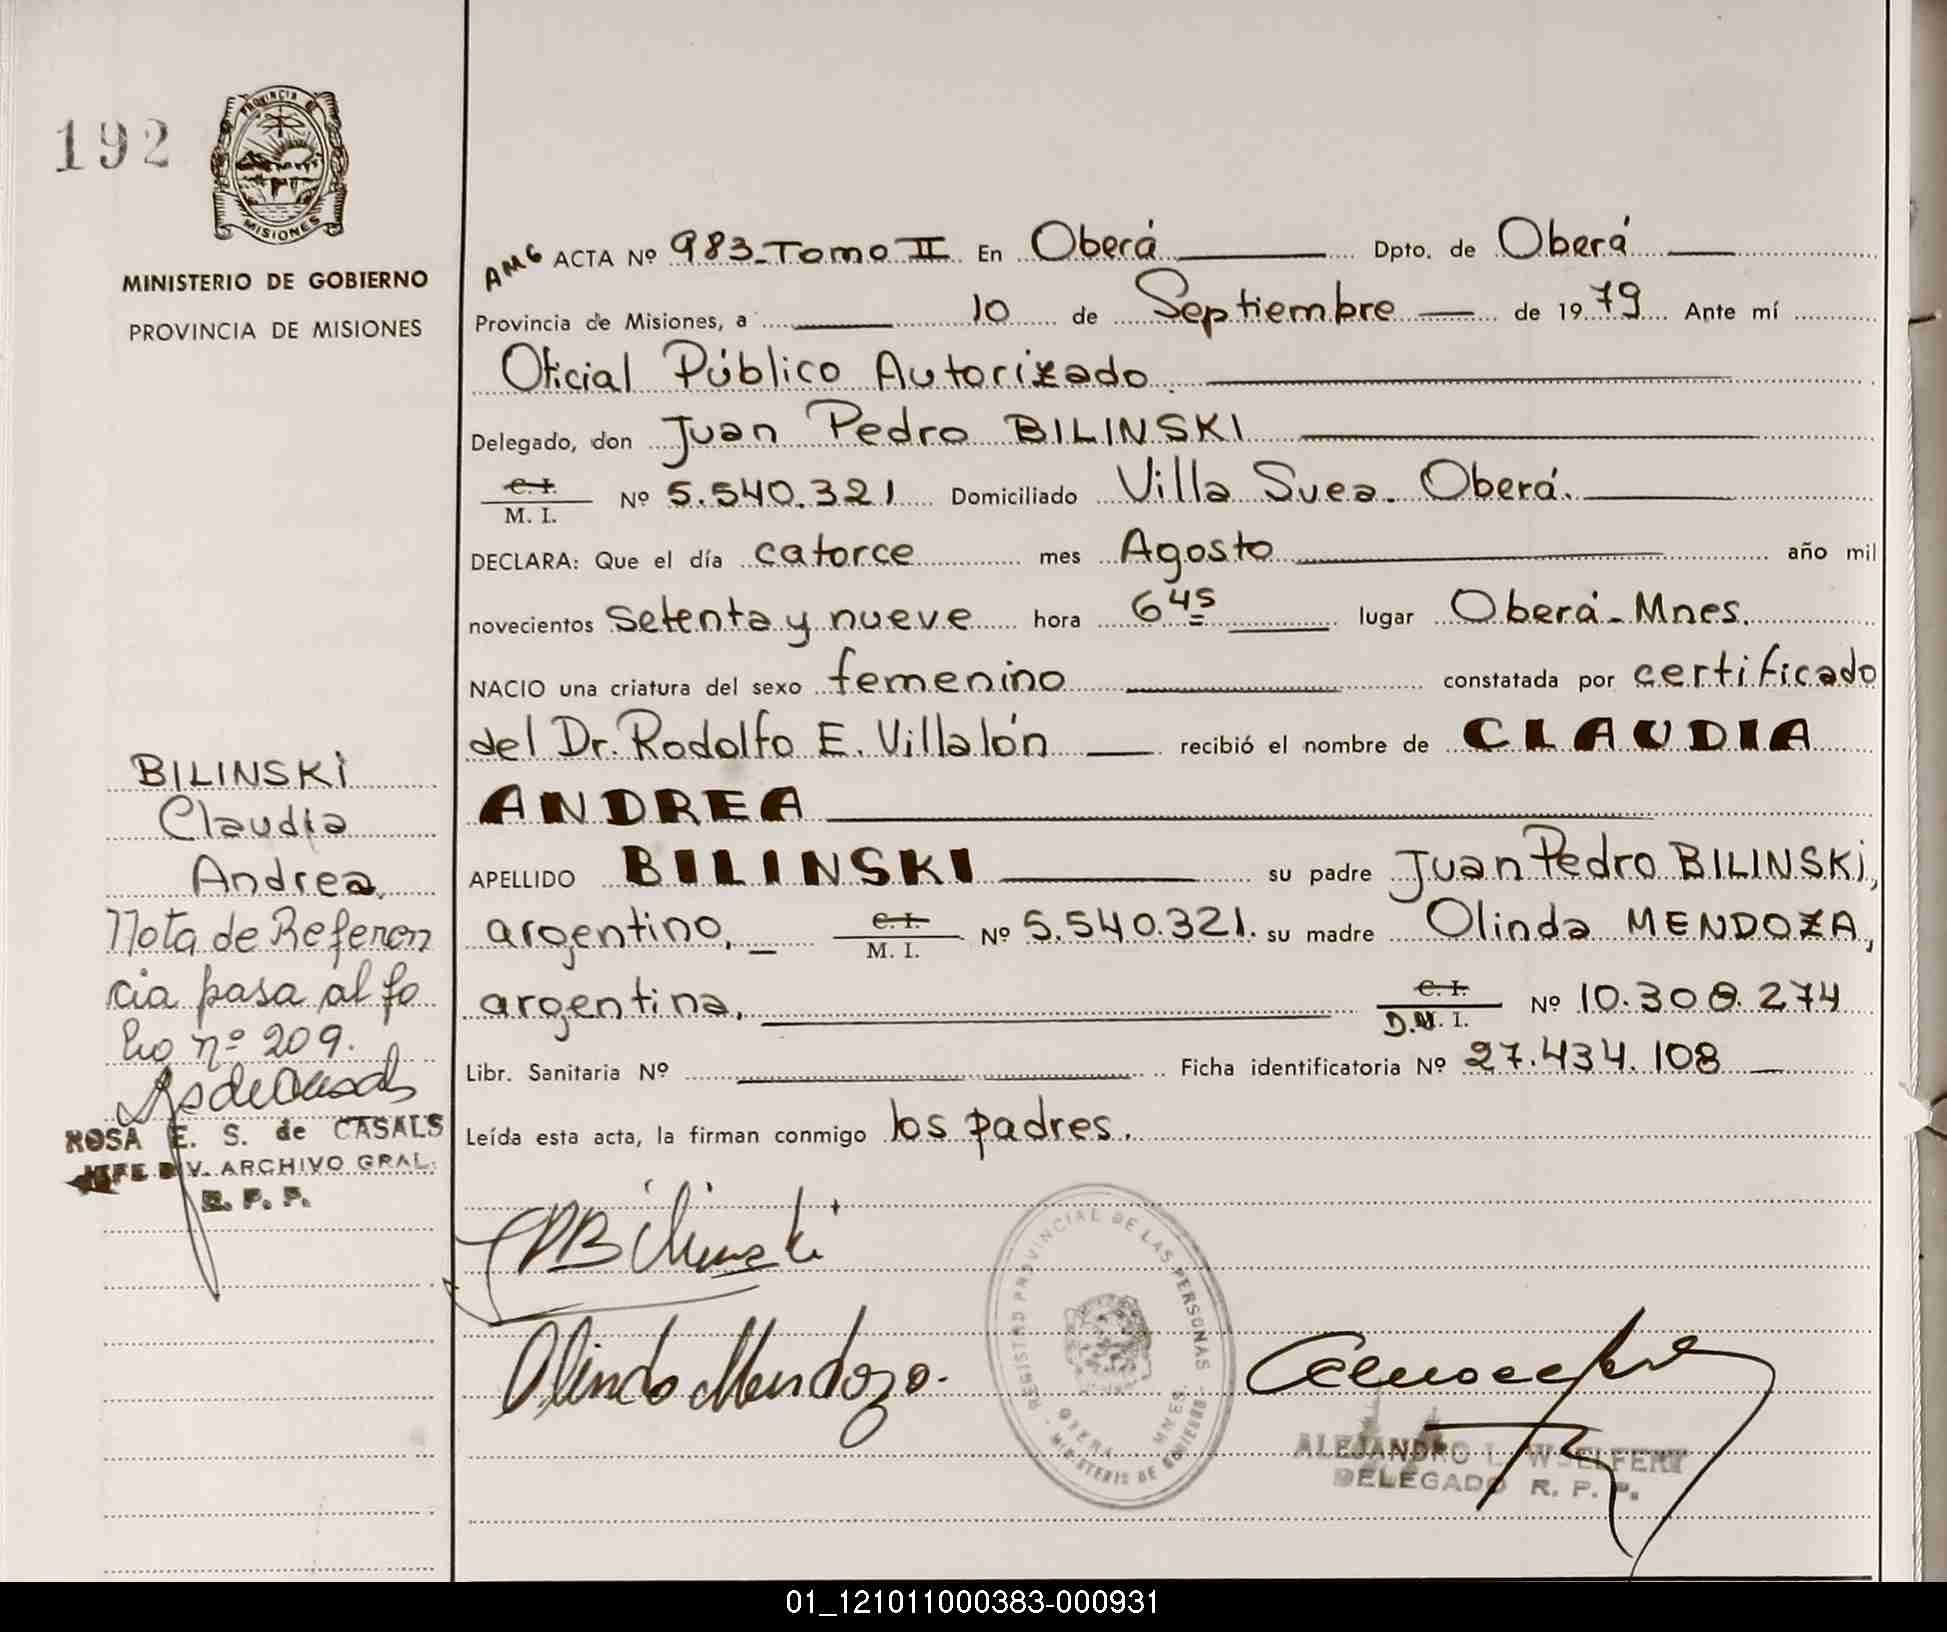 192
PROVINCIA DE
MISIONES
MINISTERIO DE GOBIERNO
PROVINCIA DE MISIONES
AMG ACTA Nº 983-Tomo II En Oberá Dpto. de Oberá
Provincia de Misiones, a 10 de Septiembre de 1979 Ante mí
Oficial Público Autorizado.
Delegado, don Juan Pedro BILINSKI
C. I.
M. I. Nº 5.540.321 Domiciliado Villa Svea. Oberá.
DECLARA: Que el día catorce mes Agosto año mil
novecientos setenta y nueve hora 6 45 lugar Oberá-Mnes.
NACIO una criatura del sexo femenino constatada por certificado
del Dr. Rodolfo E. Villalón recibió el nombre de CLAUDIA
ANDREA
APELLIDO BILINSKI su padre Juan Pedro BILINSKI,
argentino, C. I. M. I. Nº 5.540.321. su madre Olinda MENDOZA,
argentina, C. I. D.N. I. Nº 10.308.274
Libr. Sanitaria Nº Ficha identificatoria Nº 27.434.108
Leída esta acta, la firman conmigo los padres.
BILINSKI
Claudia
Andrea.
Nota de Referen
cia pasa al fo
lio nº 209.
ROSA E. S. de CASALS
JEFE DIV. ARCHIVO GRAL.
R. P. P.
JPBilinski
Olinda Mendoza.
REGISTRO PROVINCIAL DE LAS PERSONAS
OBERA MNES.
MINISTERIO DE GOBIERNO
ALEJANDRO L. WOELFERT
DELEGADO R. P. P.
01_121011000383-000931